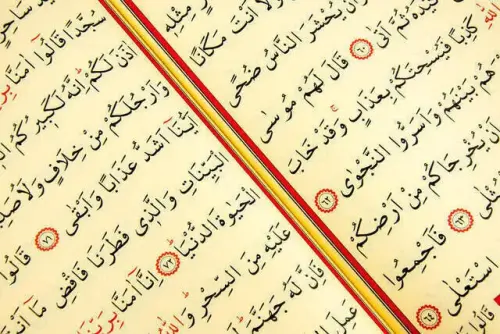 مِثْلِهِ
وَلَا اَنْتَ مَكَانًا
يُحْشَرَ النَّاسُ ضُحًى
كَيْدَهُ ثُمَّ اَتٰى ٦٠ قَالَ لَهُمْ مُوسٰى
اللّٰهِ كَذِبًا فَيُسْحِتَكُمْ بِعَذَابٍ وَقَدْ خَابَ
هُمْ بَيْنَهُمْ وَاَسَرُّوا النَّجْوٰى ٦٢
اَنْ يُخْرِجَاكُمْ مِنْ اَرْضِكُمْ
٦٣ فَاَجْمِعُوا
اسْتَعْلٰى ٦٤
قَالُوا
سُجَّدًا قَالُوا اٰمَنَّا بِرَبِّ
اٰذَنَ لَكُمْ اِنَّهُ لَكَبِيرُكُمُ
وَاَرْجُلَكُمْ مِنْ خِلَافٍ وَلَاُصَلِّ
اَيُّنَا اَشَدُّ عَذَابًا وَاَبْقٰى ٧١ قَالُوا
الْبَيِّنَاتِ وَالَّذِي فَطَرَنَا فَاقْضِ مَا اَنْتَ
الْحَيٰوةَ الدُّنْيَا ٧٢ اِنَّا اٰمَنَّا بِرَبِّنَا
عَلَيْهِ مِنَ السِّحْرِ وَاللّٰهُ
فَاِنَّ لَهُ جَهَنَّمَ